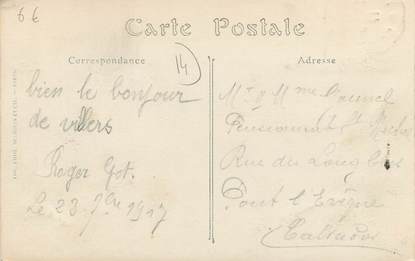 66
Carte Postale
Correspondance
Adresse
14
bien le bonjour
de villers
Roger Got.
Le 23 7bre 1917
Mr & Mme
Pensionnat St Michel
Rue du
Pont l'Evêque
Calvados